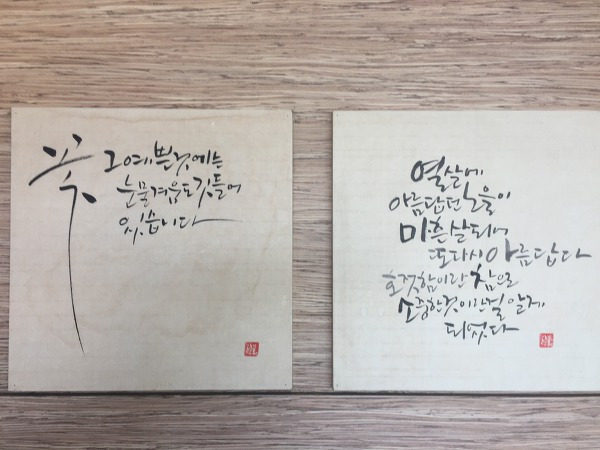 꽃
그 예쁜 것에는
눈물겨움도 깃들어
있습니다
열 살에
아름답던 노을이
마흔 살 되어
또다시 아름답다
호젓함이란 참으로
소중한 것이란 걸 알게
되었다